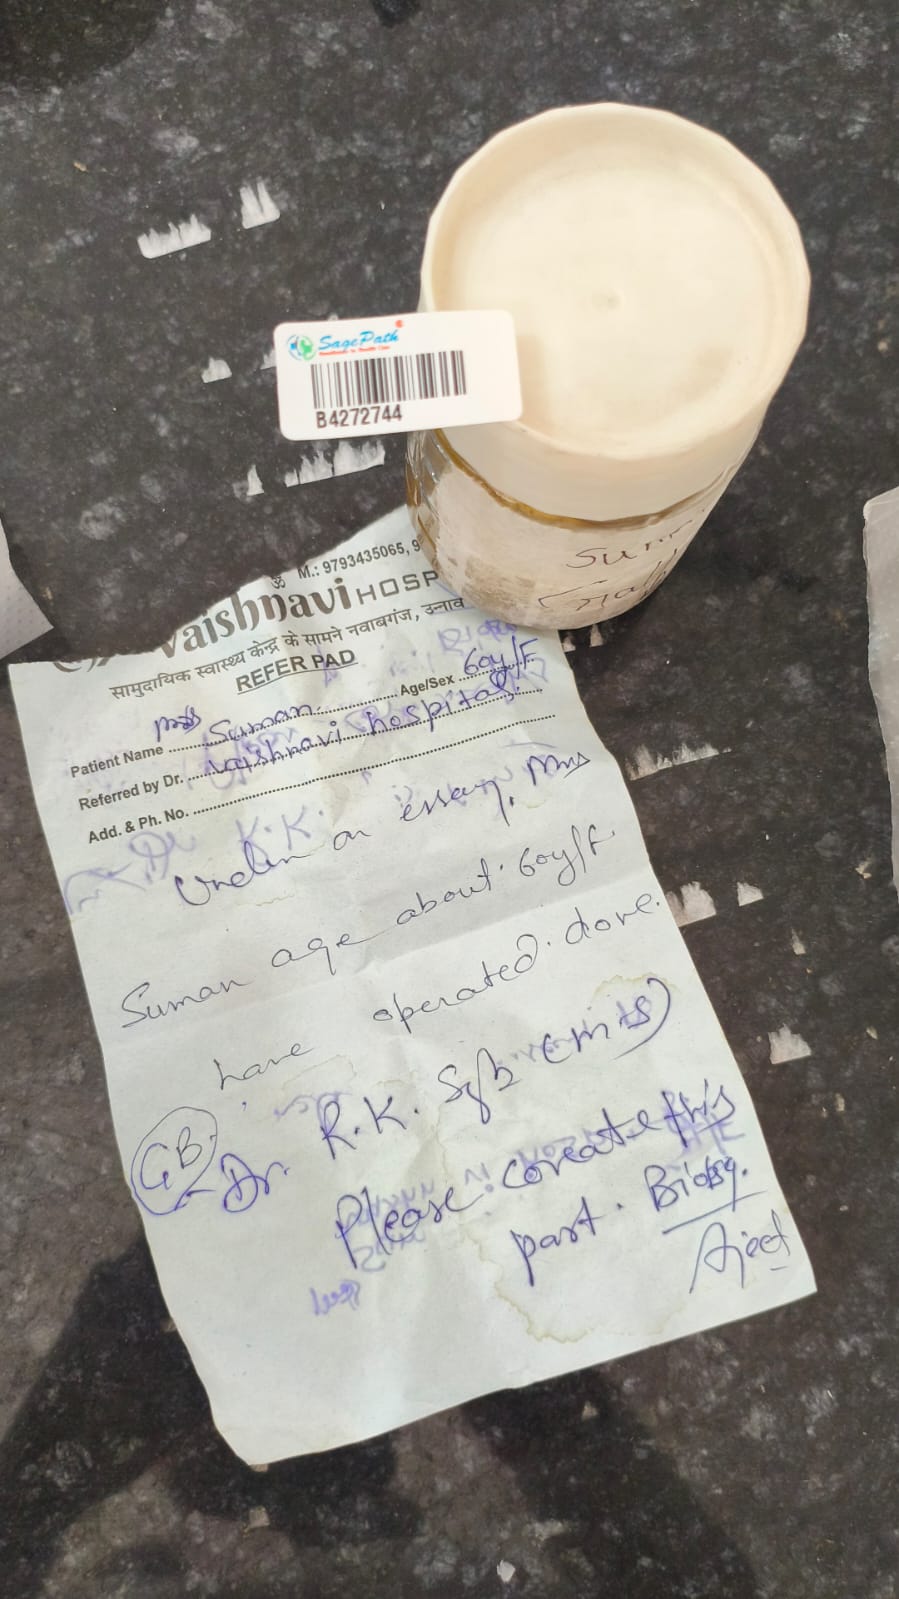 SagePath
B4272744
Sum
M.: 9793435065, 9
Vaishnavi HOSP
सामुदायिक स्वास्थ्य केन्द्र के सामने नवाबगंज, उन्नाव
REFER PAD
Patient Name Mrs Suman Age/Sex 60y/F
Referred by Dr. Vaishnavi hospital.
Add. & Ph. No.
on Mrs
Suman age about 60y/F
have operated done.
GB. Dr. R.K.
Please this
part. Biopsy.
Ajeet